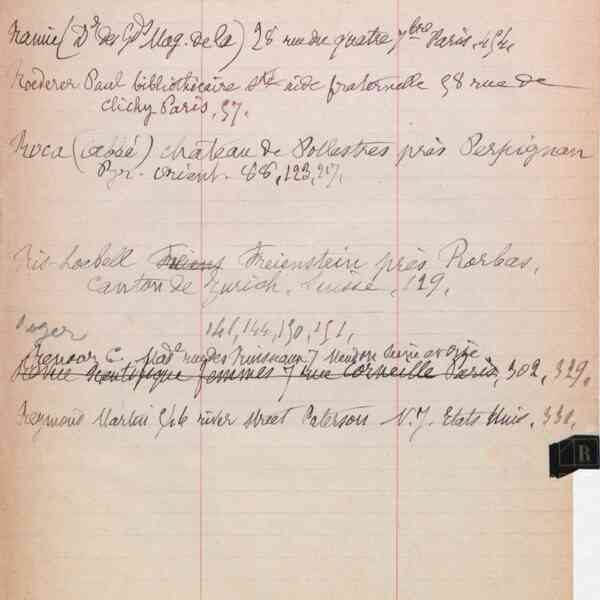 (Dr des Gds Mag. de la) 28 rue du quatre 7bre Paris.
Roederer Paul bibliothécaire Sté aide fraternelle 58 rue de
Clichy Paris, 57.
Roca (abbé) château de Pollestres près Perpignan
Pyr. orient. 88, 123, 217,
Ris-Loebell Freienstein près Rorbas,
Canton de Zurich, Suisse, 129,
Roger 141, 144, 150, 151,
Renooz C. Mad rue des 7 Meudon Seine et Oise
Revue Scientifique femmes 7 rue Corneille Paris, 302, 329,
Reymond Martin river street Paterson N.J. Etats Unis, 331,
R